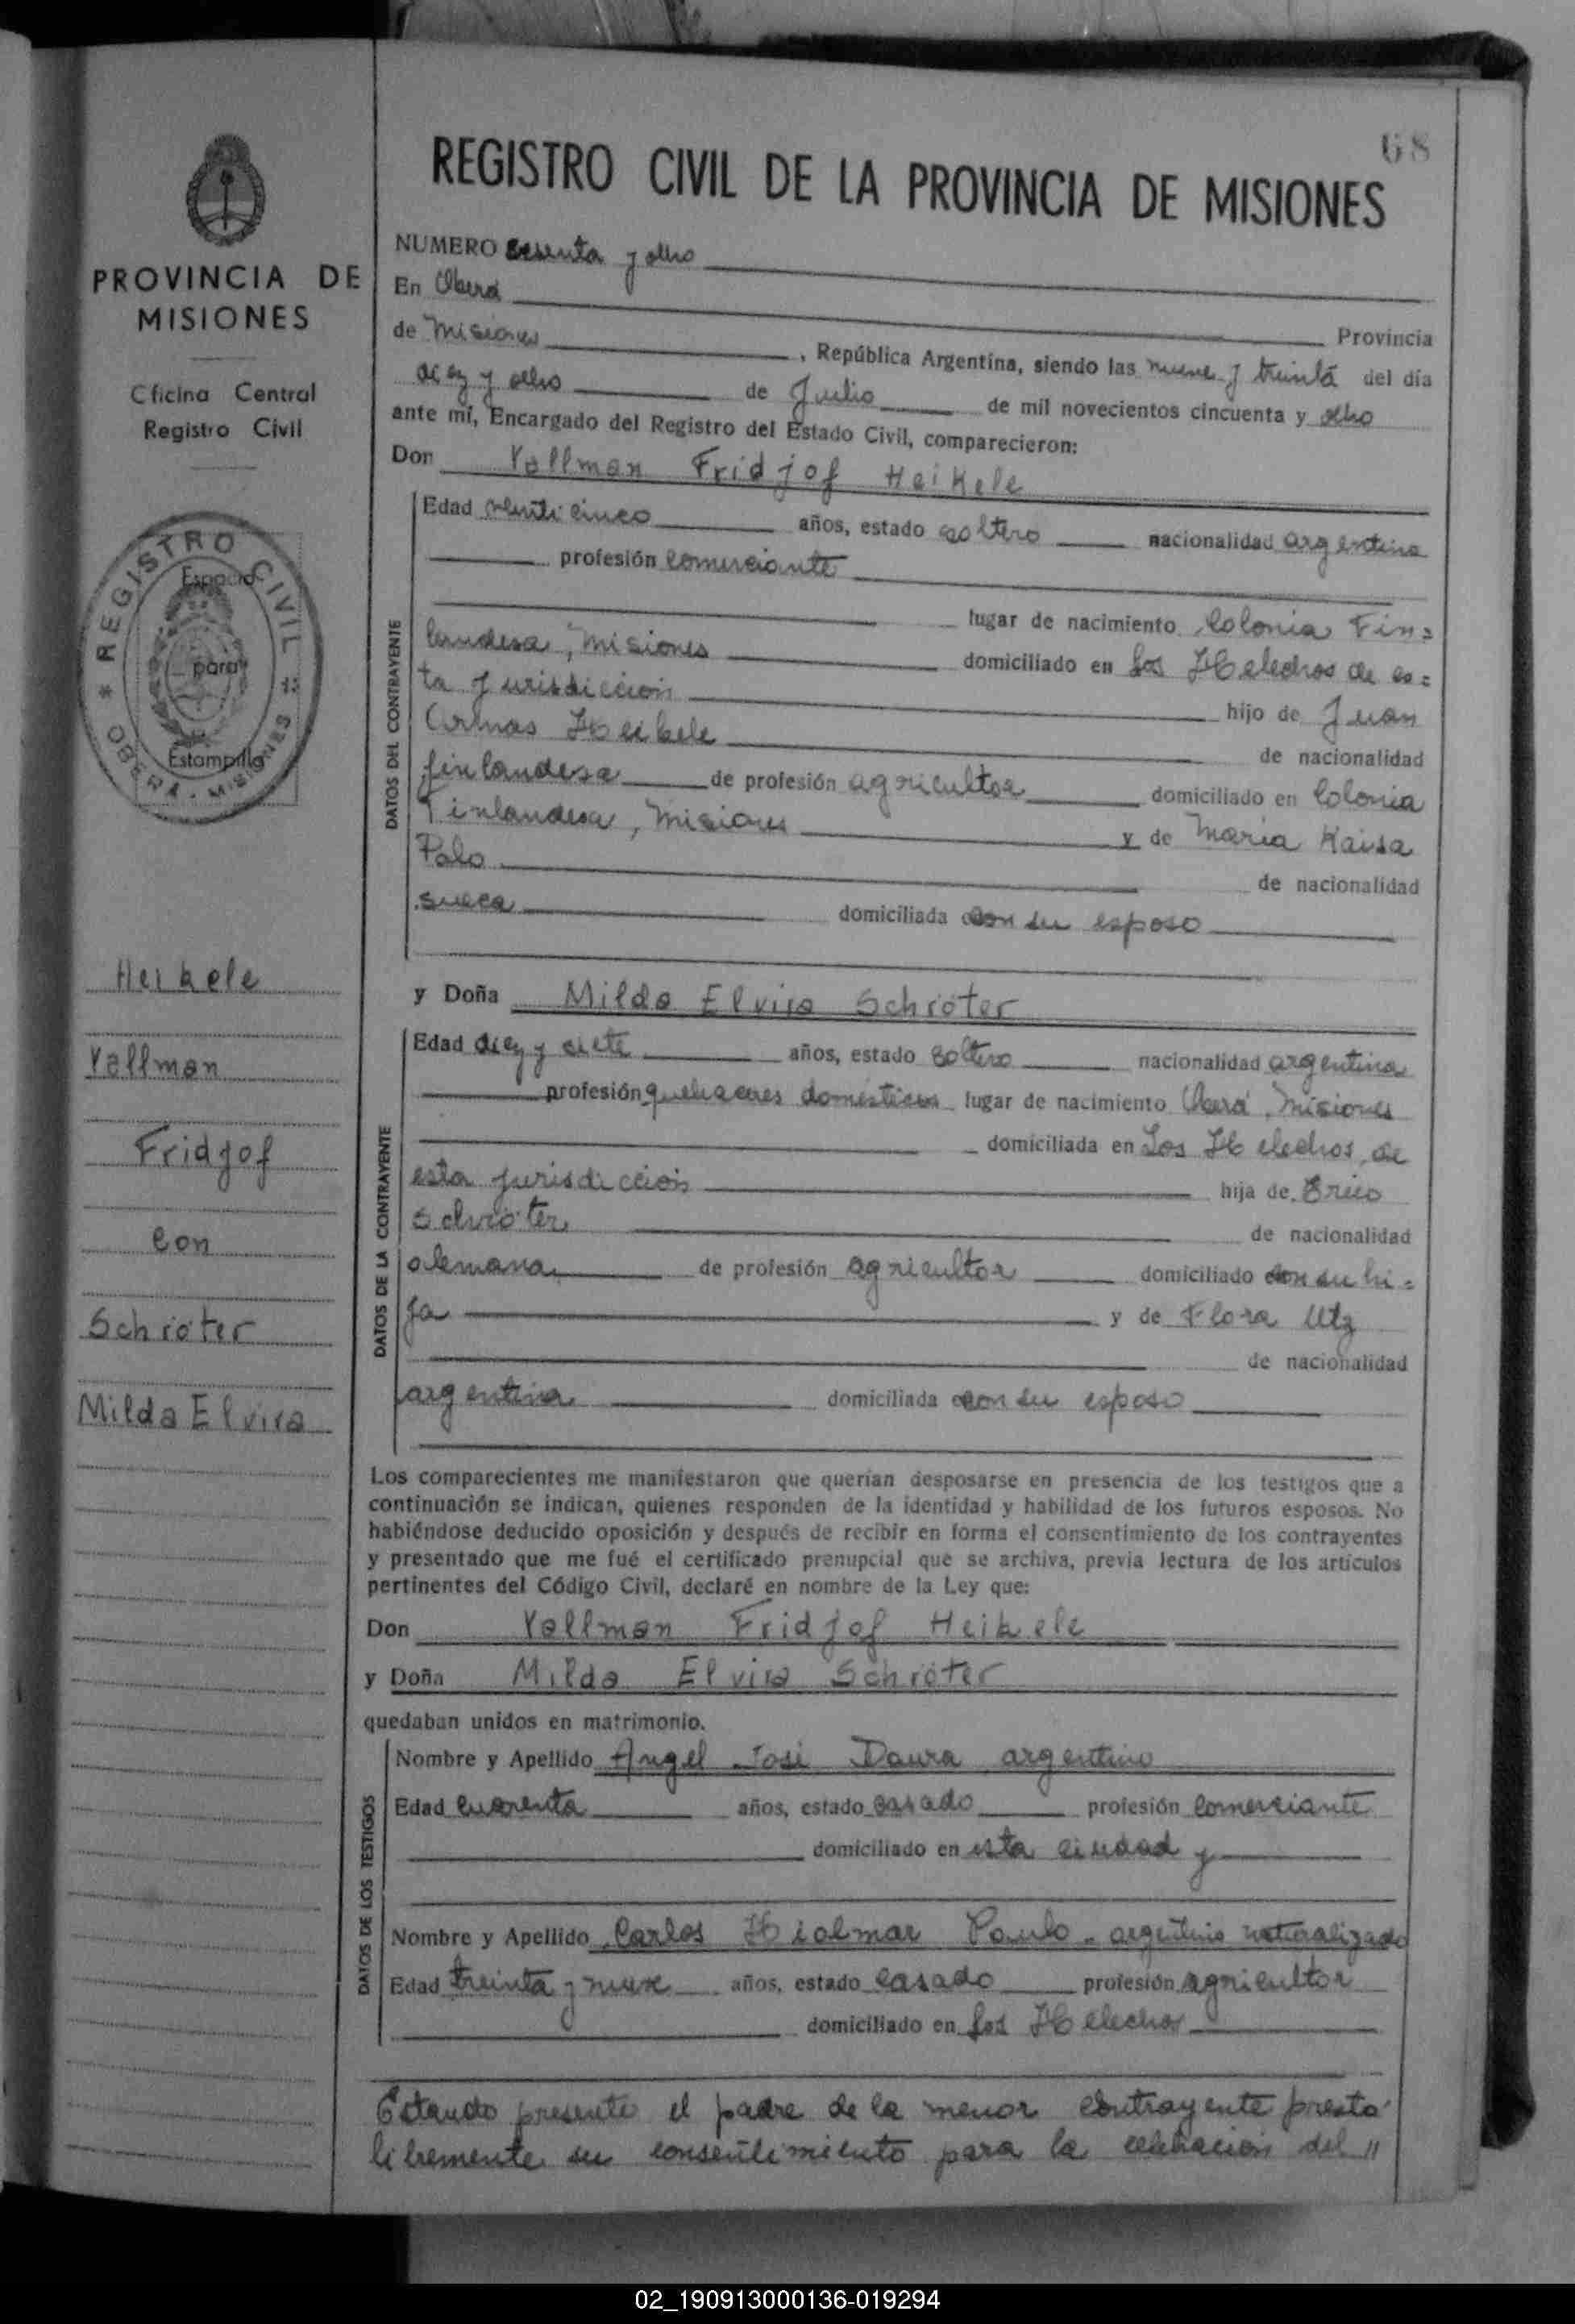 68
PROVINCIA DE
MISIONES
Oficina Central
Registro Civil
REGISTRO CIVIL
Espacio
para
Estampilla
OBERA - MISIONES
Heikele
Vallman
Fridjof
con
Schröter
Milda Elvira
REGISTRO CIVIL DE LA PROVINCIA DE MISIONES
NUMERO sesenta y ocho
En Oberá Provincia
de Misiones, República Argentina, siendo las nueve y treinta del día
diez y ocho de Julio de mil novecientos cincuenta y ocho
ante mí, Encargado del Registro del Estado Civil, comparecieron:
Don Vallman Fridjof Heikele
DATOS DEL CONTRAYENTE
Edad veinticinco años, estado soltero nacionalidad argentina
profesión comerciante
lugar de nacimiento Colonia Fin=
landesa, Misiones domiciliado en Los Helechos de es=
ta jurisdicción hijo de Juan
Armas Heikele de nacionalidad
finlandesa de profesión agricultor domiciliado en Colonia
Finlandesa, Misiones y de Maria Kaisa
Palo de nacionalidad
sueca domiciliada con su esposo
y Doña Milda Elvira Schröter
DATOS DE LA CONTRAYENTE
Edad diez y siete años, estado soltera nacionalidad argentina
profesión quehaceres domésticos lugar de nacimiento Oberá, Misiones
domiciliada en Los Helechos, de
esta jurisdicción hija de Erico
Schröter de nacionalidad
alemana de profesión agricultor domiciliado con su hi=
ja y de Flora Utz
de nacionalidad
argentina domiciliada con su esposo
Los comparecientes me manifestaron que querían desposarse en presencia de los testigos que a
continuación se indican, quienes responden de la identidad y habilidad de los futuros esposos. No
habiéndose deducido oposición y después de recibir en forma el consentimiento de los contrayentes
y presentado que me fué el certificado prenupcial que se archiva, previa lectura de los artículos
pertinentes del Código Civil, declaré en nombre de la Ley que:
Don Vallman Fridjof Heikele
y Doña Milda Elvira Schröter
quedaban unidos en matrimonio.
DATOS DE LOS TESTIGOS
Nombre y Apellido Angel José Daura argentino
Edad cuarenta años, estado casado profesión comerciante
domiciliado en esta ciudad y
Nombre y Apellido Carlos Hialmar Paulo - argentino naturalizado
Edad treinta y nueve años, estado casado profesión agricultor
domiciliado en Los Helechos
Estando presente el padre de la menor contrayente presto
libremente su consentimiento para la celebración del "
02_190913000136-019294